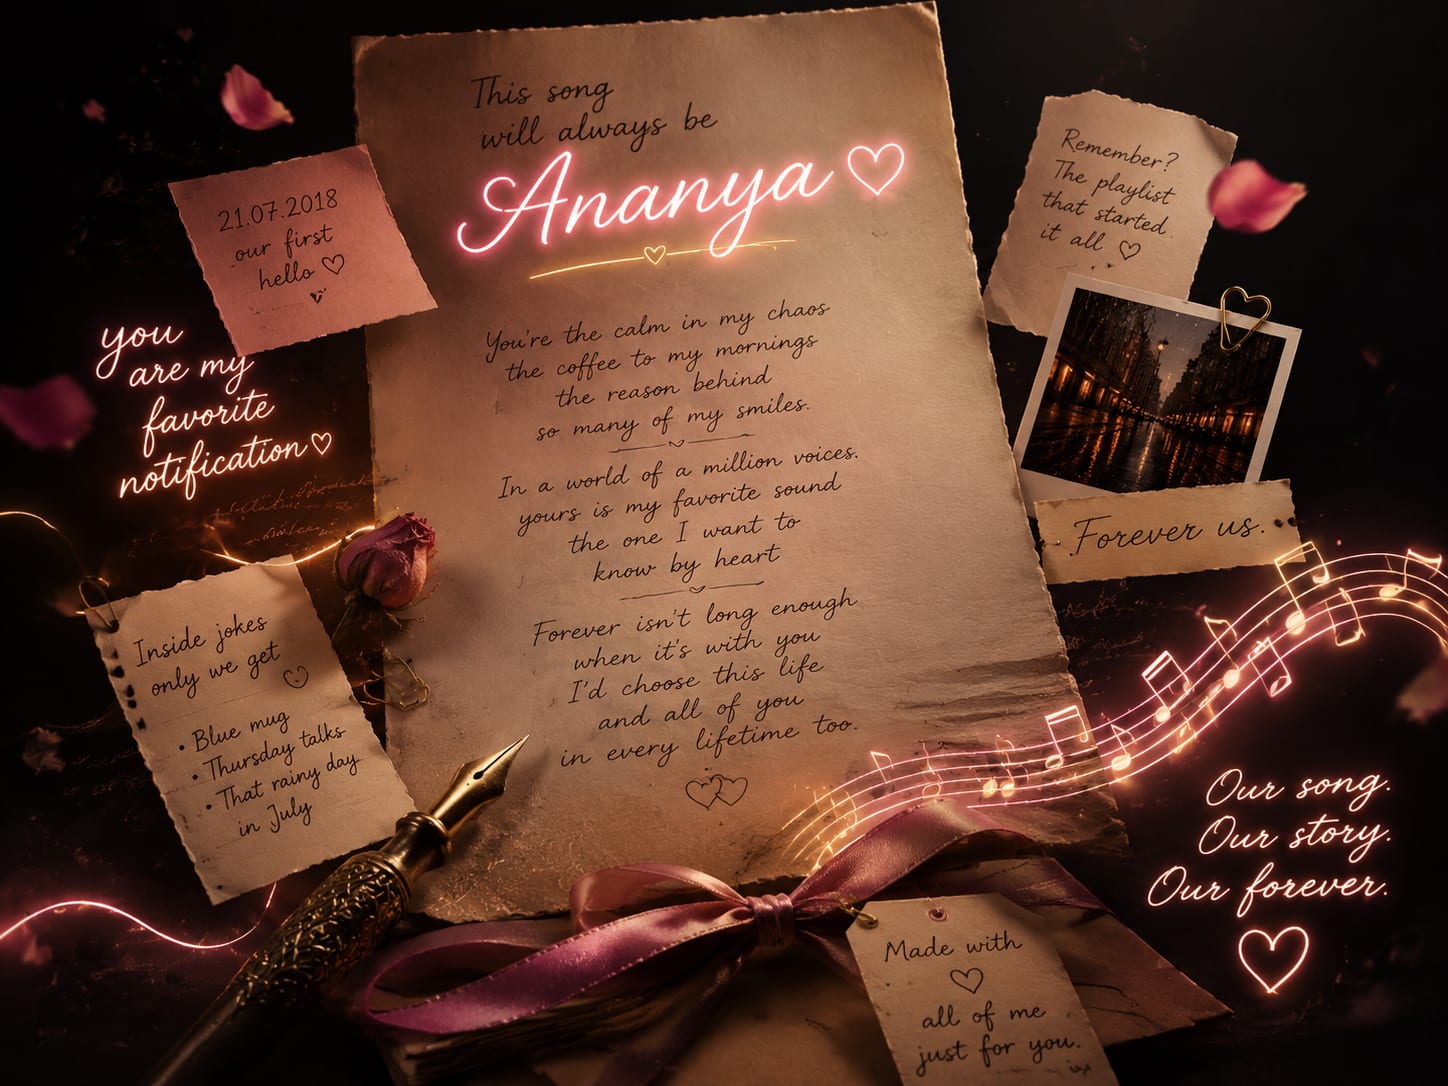 This song
will always be
Ananya
21.07.2018
our first
hello
you
are my
favorite
notification
You're the calm in my chaos
the coffee to my mornings
the reason behind
so many of my smiles.
In a world of a million voices.
yours is my favorite sound
the one I want to
know by heart
Forever isn't long enough
when it's with you
I'd choose this life
and all of you
in every lifetime too.
Remember?
The playlist
that started
it all
Forever us.
Inside jokes
only we get
• Blue mug
• Thursday talks
• That rainy day
in July
Our song.
Our story.
Our forever.
Made with
all of me
just for you.